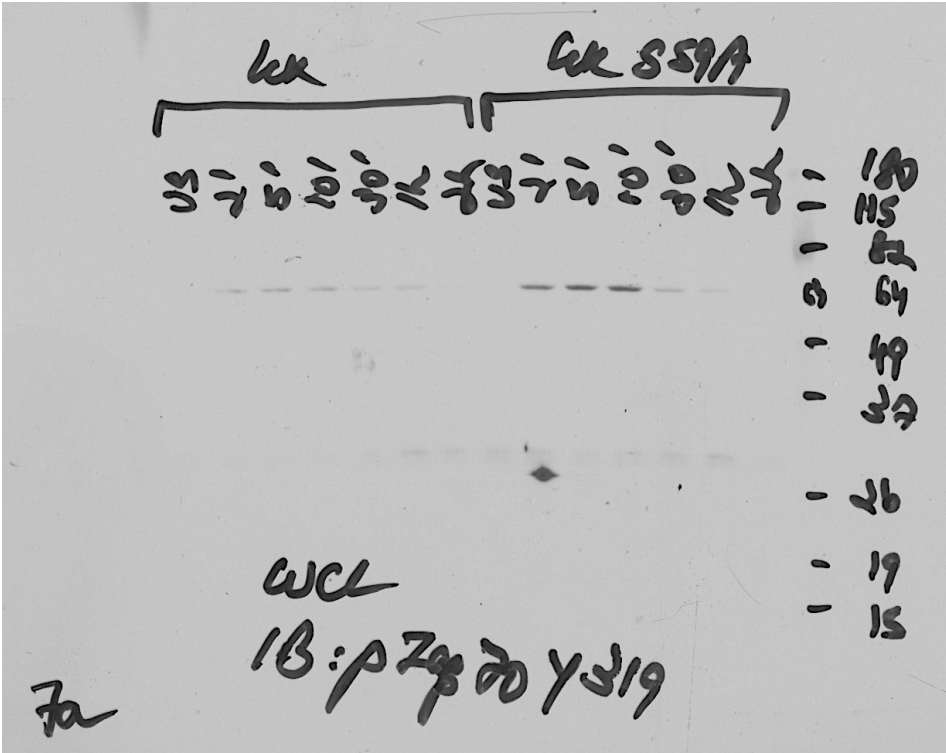 Lck Lck S59A
US 1' 5' 10' 30' 1h US 1' 5' 10' 30' 1h
180
115
82
64
49
37
26
19
15
WCL
IB: pZap70 Y319
7a